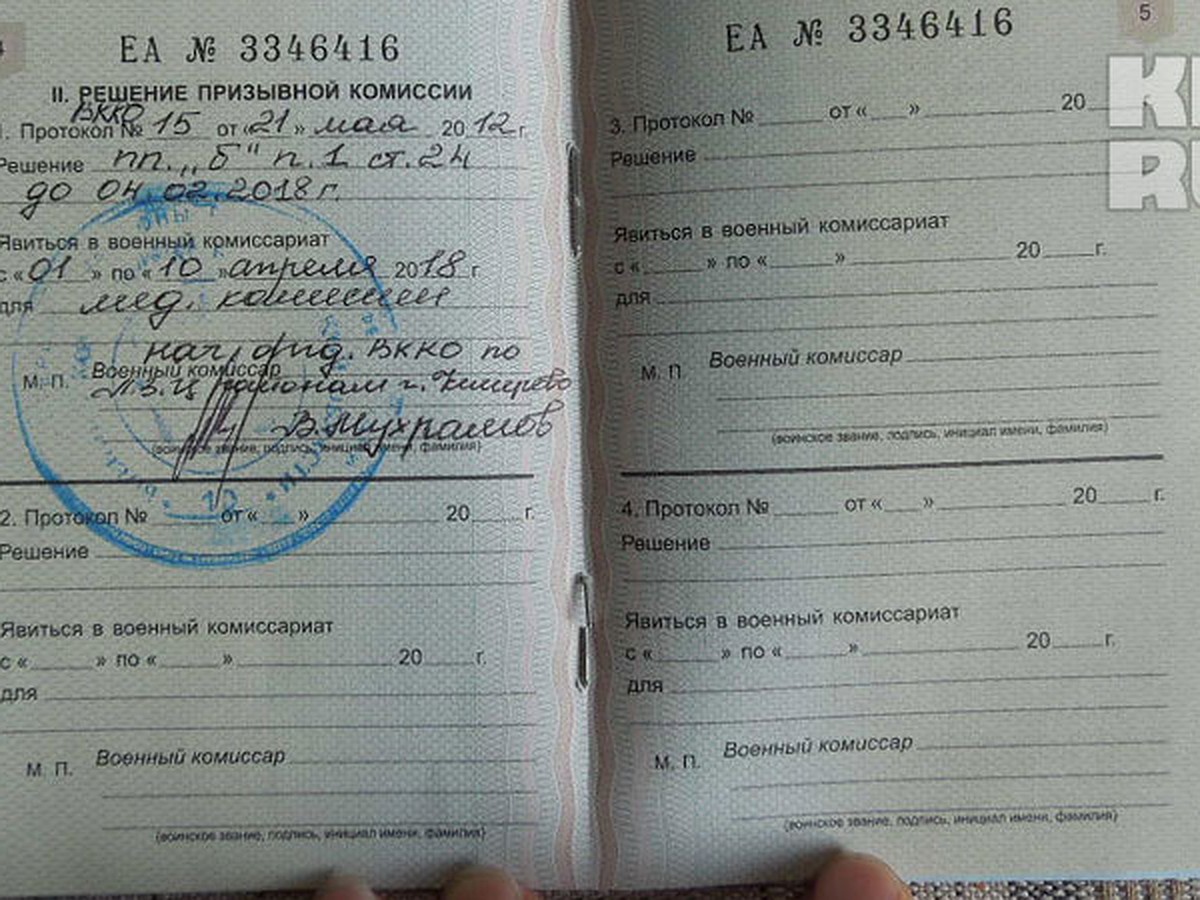 4
ЕА № 3346416
II. РЕШЕНИЕ ПРИЗЫВНОЙ КОМИССИИ
ВККО
1. Протокол № 15 от «21» мая 2012 г.
Решение пп. „б" п.1 ст.24
до 04.02.2018 г.
Явиться в военный комиссариат
с «01» по «10» апреля 2018 г.
для мед. комиссии
нач. отд. ВККО по
М. П. Военный комиссар
Л.З.Ц районам г. Кемерово
В.Мухрамов
(воинское звание, подпись, инициал имени, фамилия)
2. Протокол № от « » 20 г.
Решение
Явиться в военный комиссариат
с « » по « » 20 г.
для
М. П. Военный комиссар
(воинское звание, подпись, инициал имени, фамилия)
5
ЕА № 3346416
3. Протокол № от « » 20
Решение
Явиться в военный комиссариат
с « » по « » 20 г.
для
М. П. Военный комиссар
(воинское звание, подпись, инициал имени, фамилия)
4. Протокол № от « » 20 г.
Решение
Явиться в военный комиссариат
с « » по « » 20 г.
для
М. П. Военный комиссар
(воинское звание, подпись, инициал имени, фамилия)